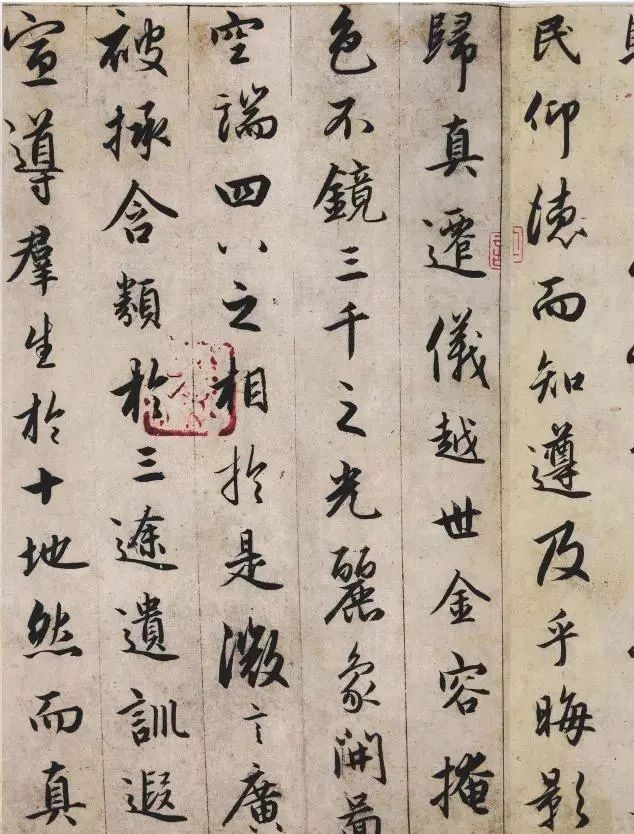 民仰德而知遵及乎晦影
歸真遷儀越世金容掩
色不鏡三千之光麗象開圖
空端四八之相於是微言廣
被拯含類於三途遺訓遐
宣導羣生於十地然而真